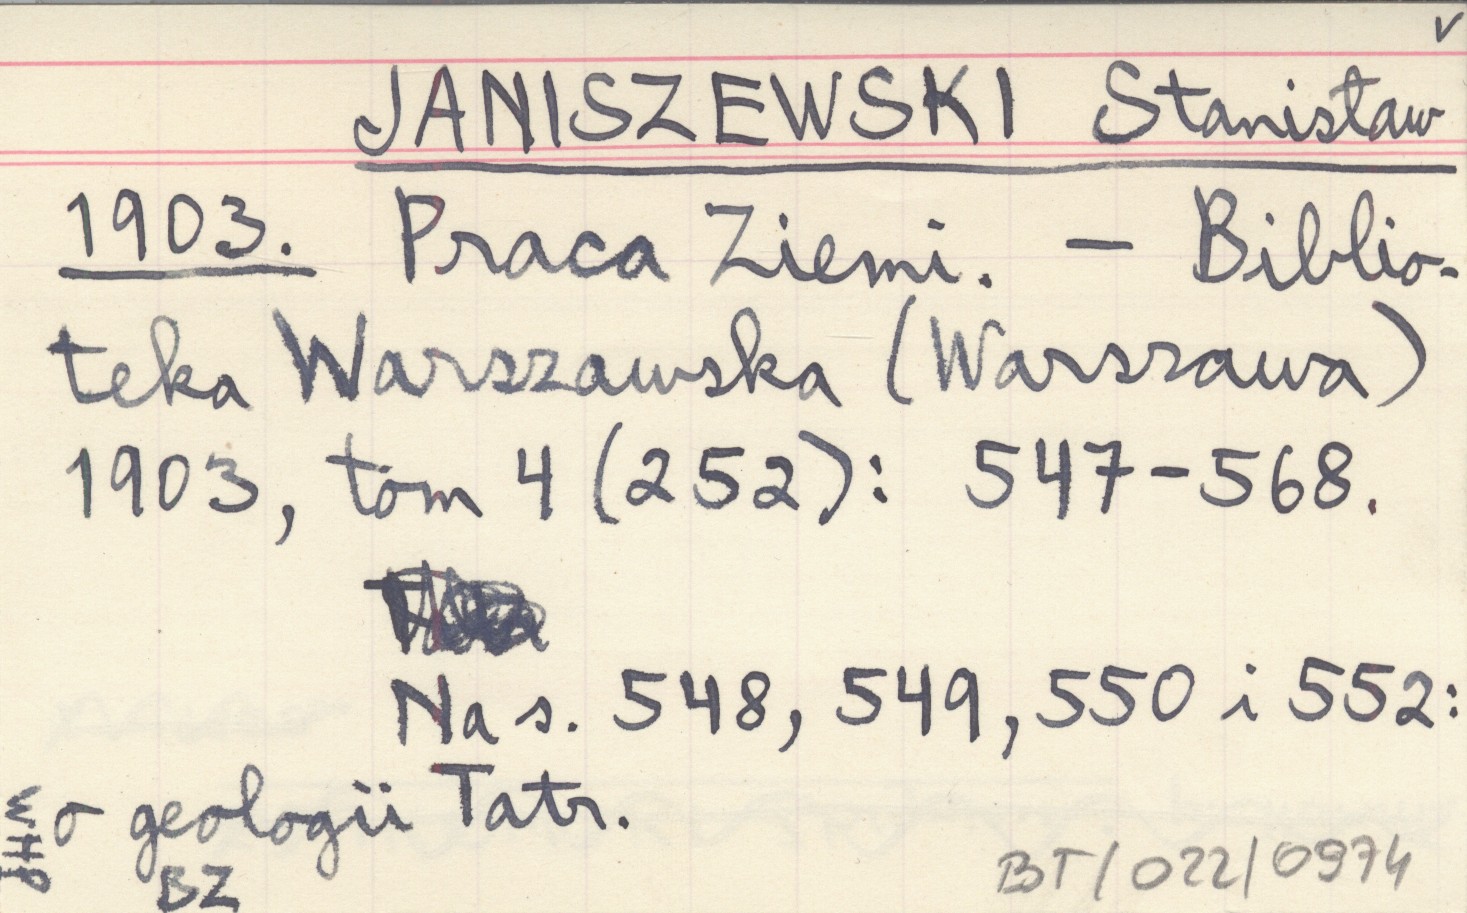 v
JANISZEWSKI Stanisław
1903. Praca Ziemi. – Biblio-
teka Warszawska (Warszawa)
1903, tom 4 (252): 547-568.
Na s. 548, 549, 550 i 552:
o geologii Tatr.
BZ
BT/022/0974